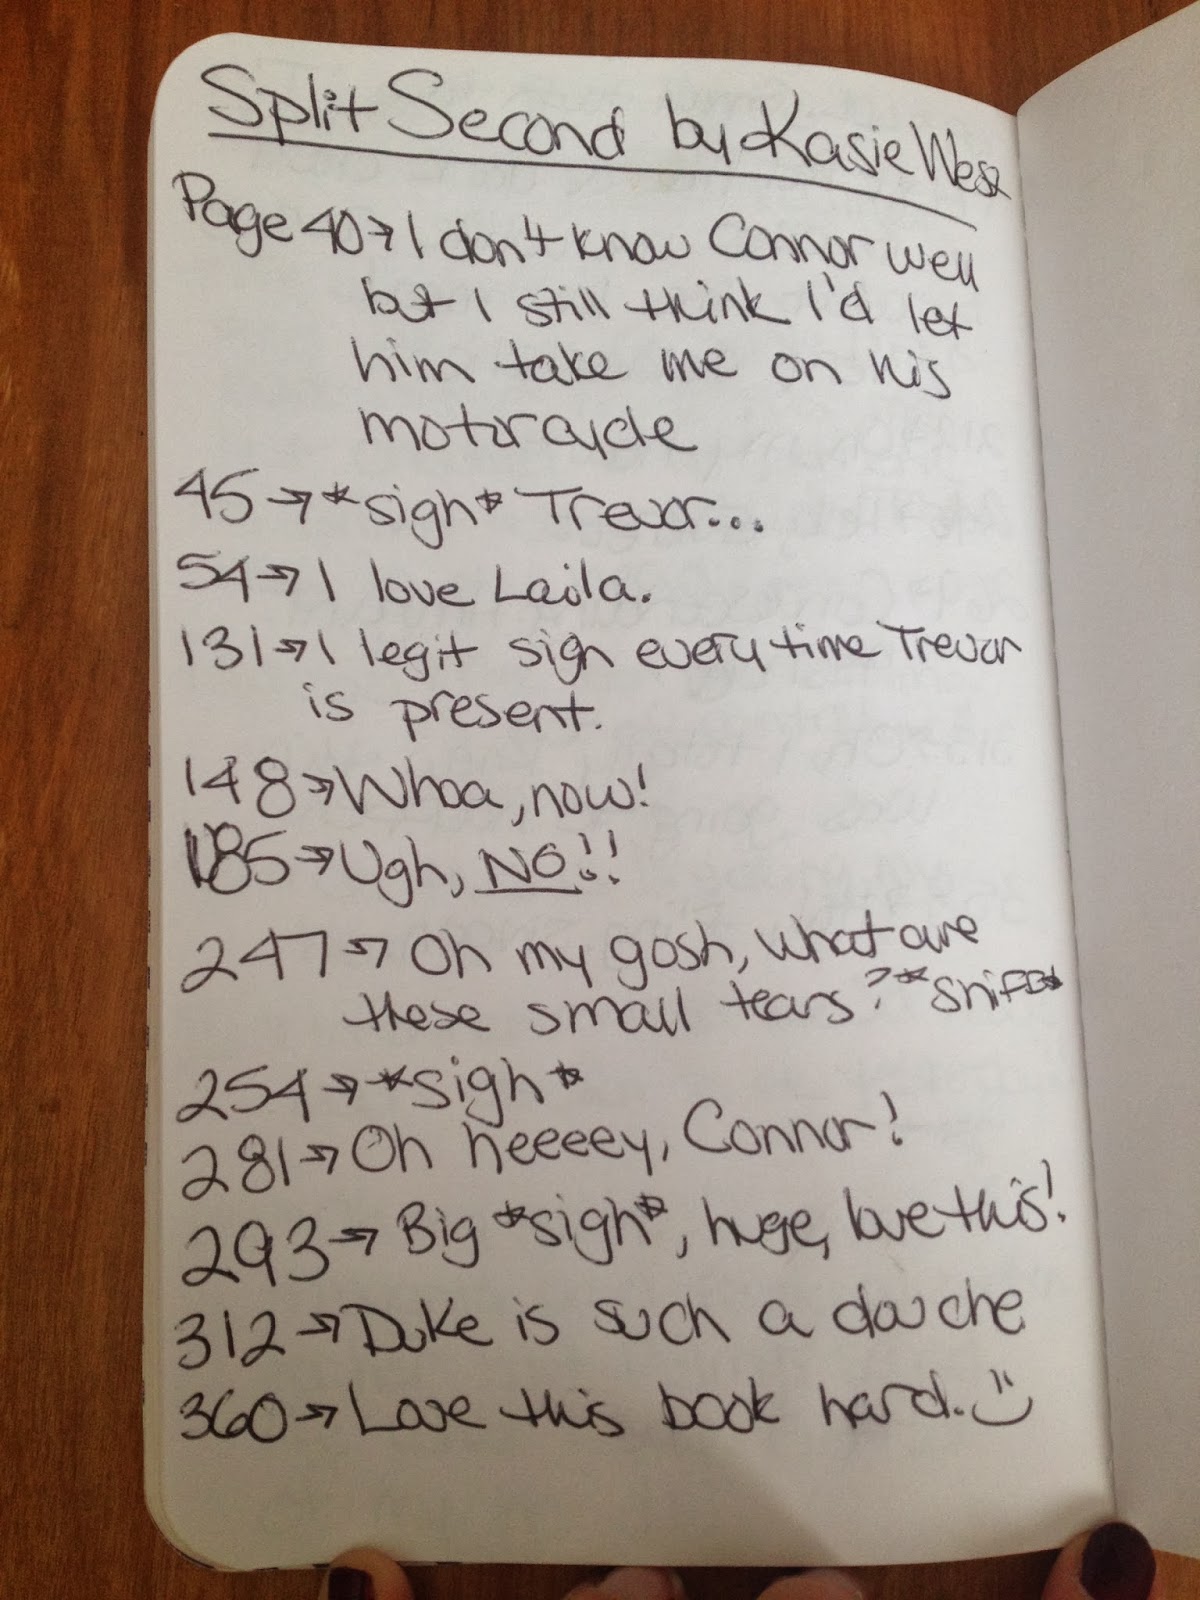 Split Second by Kasie West
Page 40→ I don't know Connor well
but I still think I'd let
him take me on his
motorcycle
45→ *sigh* Trevor...
54→ I love Laila.
131→ I legit sigh everytime Trevor
is present.
148→ Whoa, now!
185→ Ugh, NO!!
247→ Oh my gosh, what are
these small tears? *sniff*
254→ *sigh*
281→ Oh heeeey, Connor!
293→ Big *sigh*, huge, love this!
312→ Duke is such a douche
360→ Love this book hard. :)